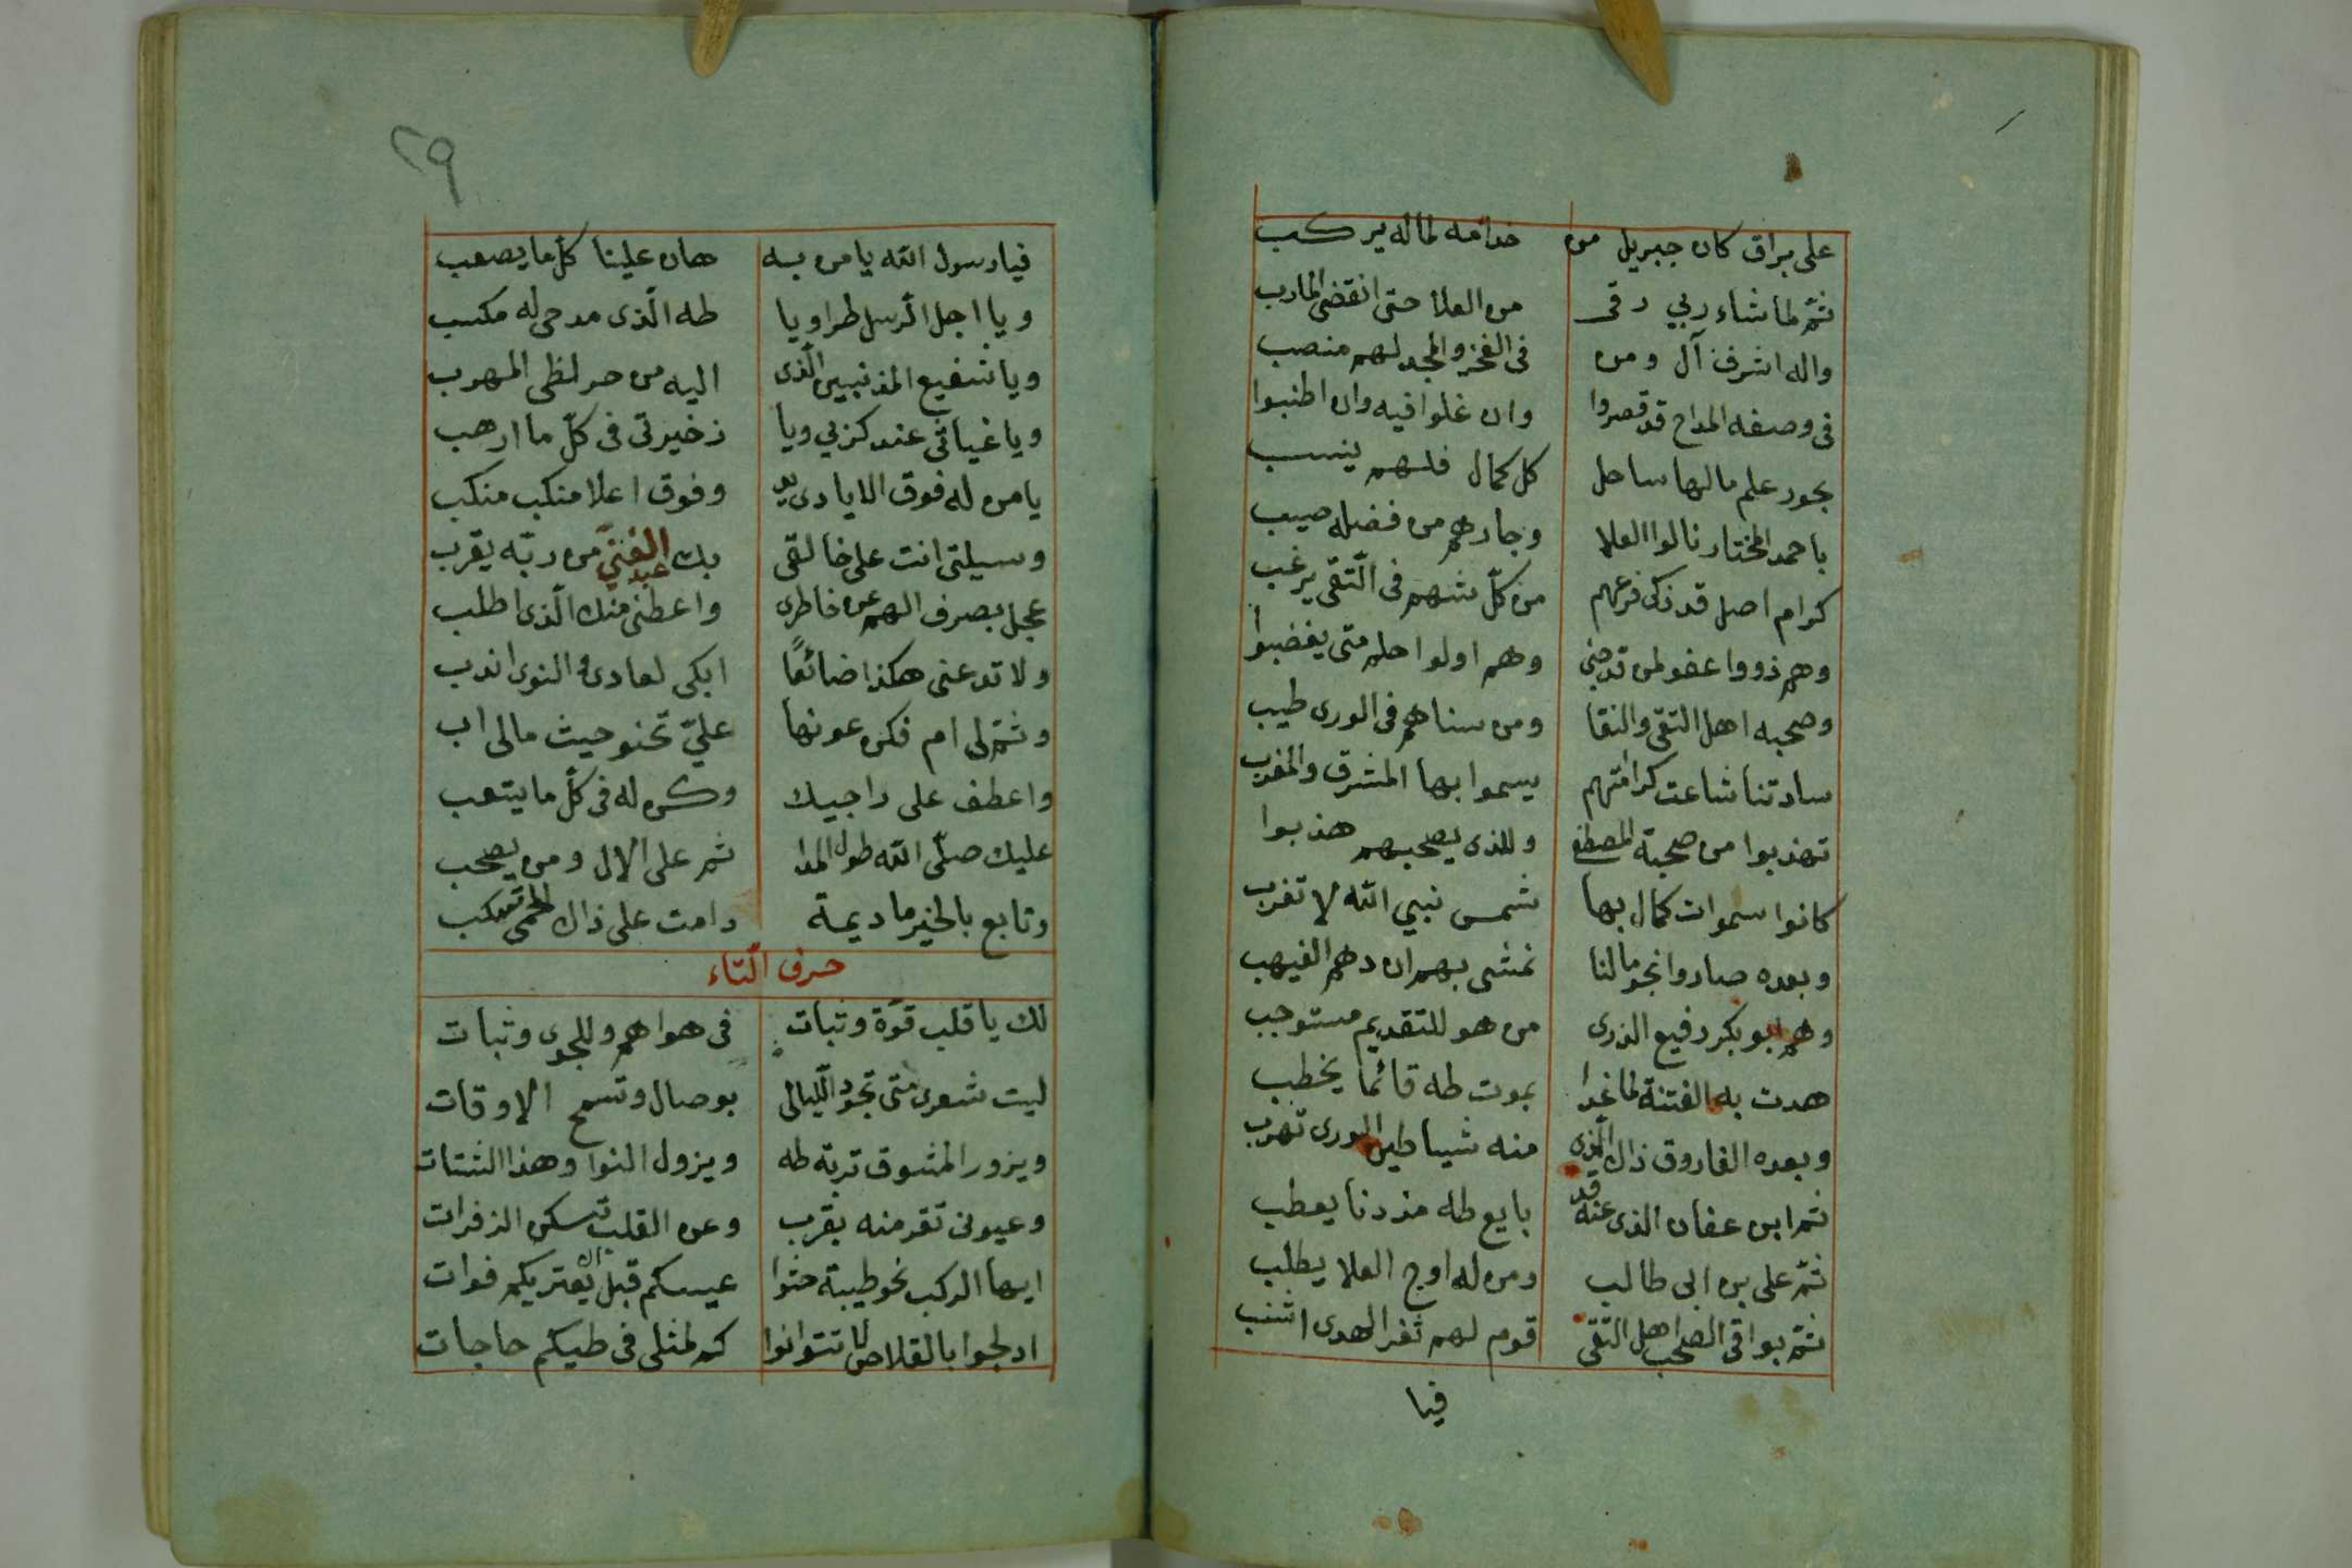 على براق كان جبريل من خدامه لما له يركب
ثمّ لما شاء ربي رقى من العلا حتى انقضى المارب
واله اشرف آل ومن فى الفخر والمجد لهم منصب
فى وصفه المداح قد قصروا وان غلوا فيه وان اطنبوا
بحور علم ما لها ساحل كل كمال فلهم ينسب
باحمد المختار نالوا العلا وجادهم من فضله صيب
كرام اصل قد زكى فرعهم من كلّ شهم فى التّقى يرغب
وهم ذووا عفو لمن قد جنى وهم اولوا حلم متى يغضبوا
وصحبه اهل التقى والنقا ومن سناهم فى الورى طيب
سادتنا شاعت كرامتهم يسموا بها المشرق والمغرب
تهذبوا من صحبة المصطفى وللذى يصحبهم هذبوا
كانوا سموات كمال بها شمس نبي الله لا تغرب
وبعده صاروا نجوما لنا نمشى بهم ان دهم الغيهب
وهم ابو بكر رفيع الذرى من هو للتقديم مستوجب
هدت به الفتنة لما غدا بموت طه قائما يخطب
وبعده الفاروق ذاك الّذى منه شياطين الورى تهرب
ثم ابن عفان الذى عنه قد بايع طه مذ دنا يعطب
ثمّ على بن ابى طالب ومن له اوج العلا يطلب
ثمّ بواقى الصحب اهل التقى قوم لهم ثغر الهدى اشنب
فيا
٢٩
فيا رسول الله يا من به هان علينا كلّ ما يصعب
ويا اجل الرّسل طرا ويا طه الّذى مدحى له مكسب
ويا شفيع المذنبين الّذى اليه من حر لظى المهرب
ويا غياثى عند كربي ويا ذخيرتى فى كلّ ما ارهب
يا من له فوق الايادى يد وفوق اعلا منكب منكب
وسيلتى انت على خالقى بك عبد الغنيّ من ربّه يقرب
عجل بصرف الهم عن خاطرى واعطنى منك الّذى اطلب
ولا تدعنى هكذا ضائعًا ابكى لعادى النوى اندب
وثمّ لى ام فكن عونها عليّ تحنو حيث مالى اب
واعطف على راجيك وكن له فى كلّ ما يتعب
عليك صلّى الله طول المدا ثم على الال ومن يصحب
وتابع بالخير ما ديمة دامت على ذاك الحمى تسكب
حرف التّاء
لك يا قلب قوّة وثبات فى هواهم وللجوى وثبات
ليت شعرى متى تجود اللّيالى بوصال وتسمح الاوقات
ويزور المشوق تربة طه ويزول النوا وهذا الشتات
وعيونى تقر منه بقرب وعن القلب تسكن الزفرات
ايها الركب نحو طيبة حثوا عيسكم قبل ان يعتريكم فوات
ادلجوا بالقلاص لا تتوانوا كم لمثلى فى طيكم حاجات